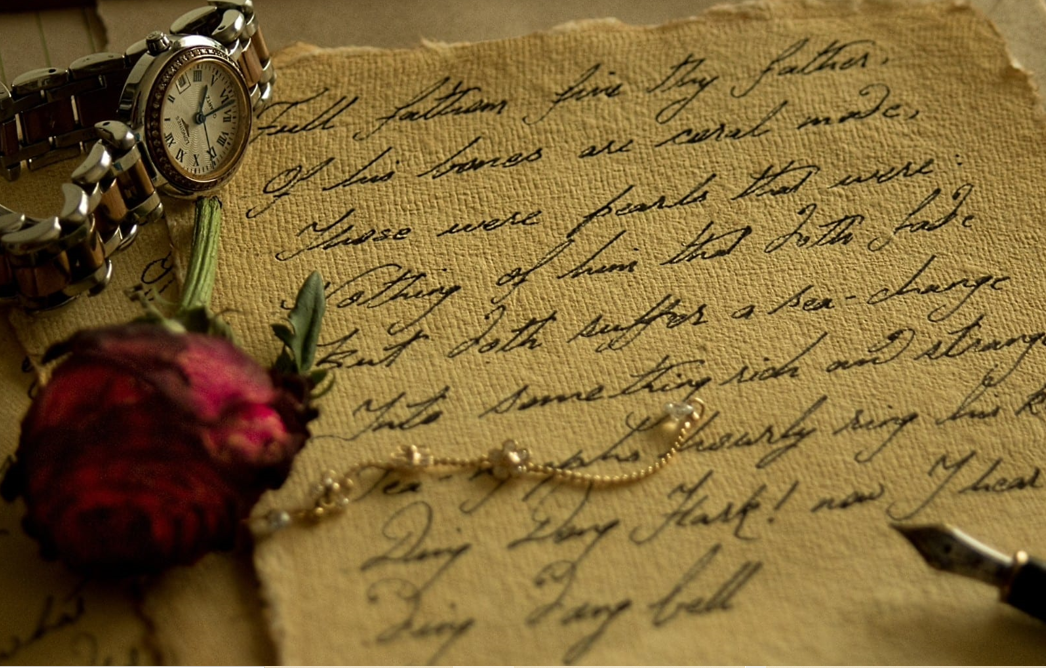 Full fathom five thy father,
Of his bones are coral made,
Those were pearls that were:
Nothing of him that doth fade
But doth suffer a sea-change
Into something rich and strange
Sea-nymphs hourly ring his k
Ding Dong Hark! now I hear
Ding Dong bell